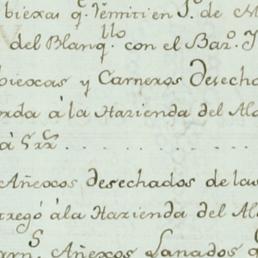 biexas q.^e Remiti en S.^n de M
del Blanq.^llo con el Bar.^o J
biexas y Carneros Desecha
rada á la Hazienda del Ala
Añexos desechados de las
tregó ála Hazienda del Ala
Añexos Lanados